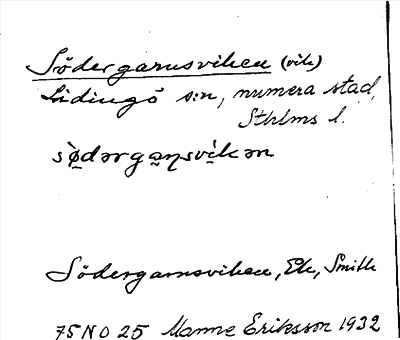 Södergarnsviken (vik)
Lidingö s:n, numera stad,
Sthlms l.
sø̀dərga̲ŋsvi̍kən
Södergarnsviken, Ek, Smith
75 NO 25 Manne Eriksson 1932